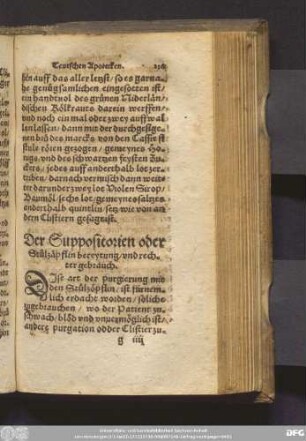 Teutschen Apotecken.
sen auff das aller letzt / so es gar na-
he genůgsamlichen eingesotten ist /
ein handtuol des grůnen Niderlän-
dischen Kölkrauts darein werffen /
vnd noch ein mal oder zwey auff wal
len lassen / dann mit der durchgesige-
nen brů des marcks von den Cassien fi
stule rören gezogen / gemeynes Ho-
nigs / vnd des schwartzen feysten Zu-
ckers / jedes auff anderthalb lot zer-
triben / darnach vermisch dann weit
ter darunder zwey lot Violen Sirop /
Baumöl sechs lot / gemeynes saltzes
anderthalb quintlin / setz wie von an
dern Clistiern gesagt ist.
Der Suppositorien oder
Stůlzäpflin bereytung / vnd rech-
ter gebrauch.
Dise art der purgierung mit
den Stůlzäpflin / ist fürnem-
lich erdacht worden / solichs
zugebrauchen / wo der Patient zu
schwach / blöd vnd vnuermöglich ist /
andere purgation odder Clistier zu-
g iiij